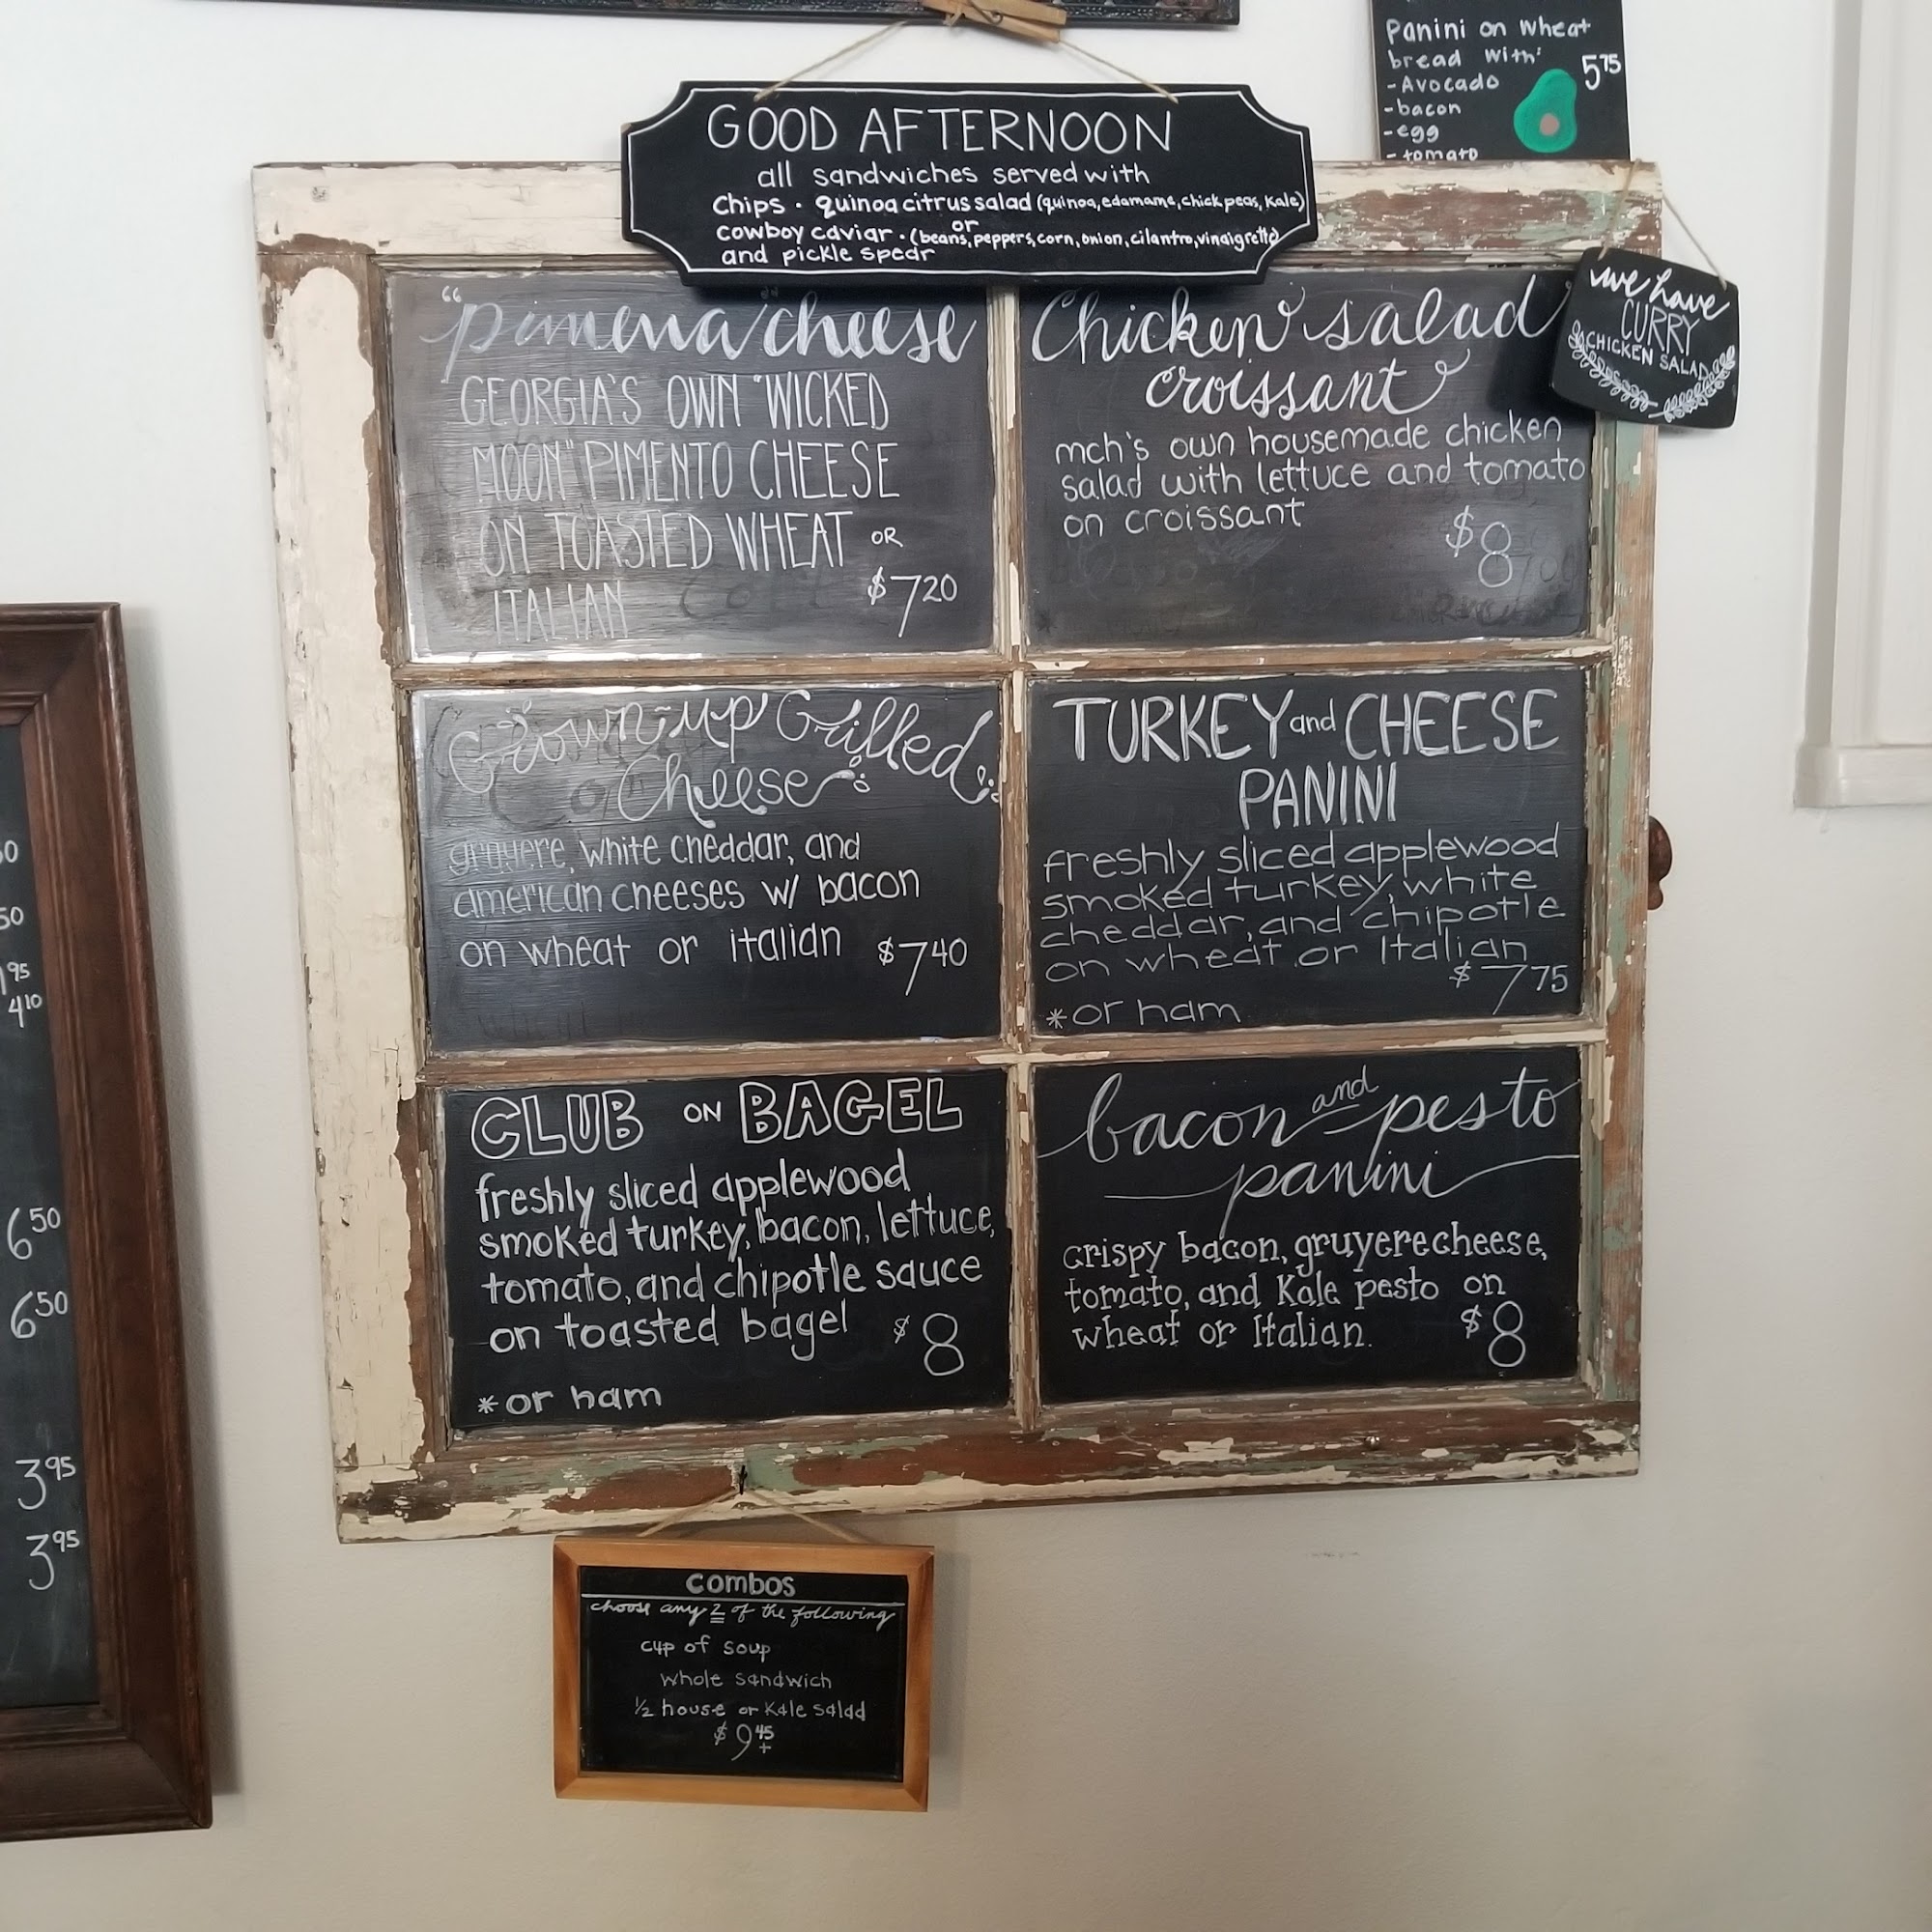 Panini on wheat
bread with:
5 75
- Avocado
- bacon
- egg
- tomato
GOOD AFTERNOON
all sandwiches served with
chips · quinoa citrus salad (quinoa, edamame, chick peas, kale)
or
cowboy caviar · (beans, peppers, corn, onion, cilantro, vinaigrette)
and pickle spear
we have
CURRY
CHICKEN SALAD
cheese
GEORGIA'S OWN "WICKED
MOON" PIMENTO CHEESE
ON TOASTED WHEAT OR
ITALIAN
$7 20
Chicken salad
croissant
mch's own housemade chicken
salad with lettuce and tomato
on croissant
$8
Grown-up Grilled
Cheese
gruyere, white cheddar, and
american cheeses w/ bacon
on wheat or italian $7 40
TURKEY and CHEESE
PANINI
freshly sliced applewood
smoked turkey, white
cheddar, and chipotle
on wheat or Italian
$7 75
*or ham
CLUB ON BAGEL
freshly sliced applewood
smoked turkey, bacon, lettuce,
tomato, and chipotle sauce
on toasted bagel $8
*or ham
bacon and pesto
panini
crispy bacon, gruyere cheese,
tomato, and kale pesto on
wheat or Italian. $8
50
50
95
4 10
6 50
6 50
3 95
3 95
combos
choose any 2 of the following
cup of soup
whole sandwich
1/2 house or kale salad
$9 45 +